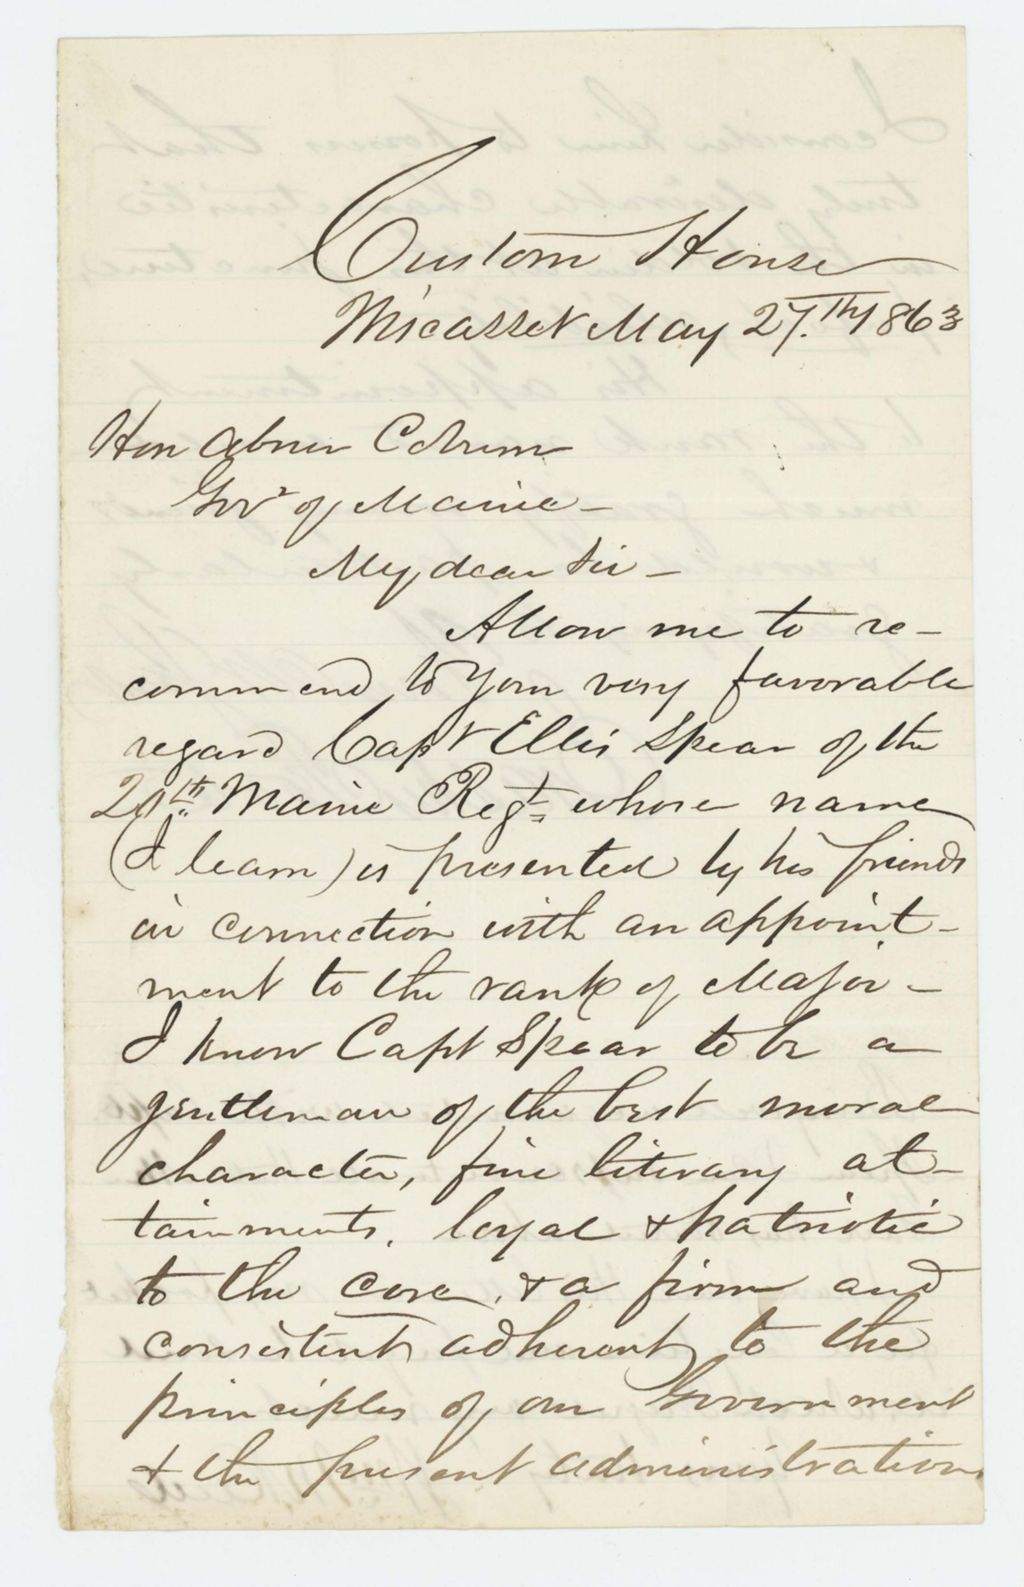 Custom House
Wiscasset May 27.th 1863
Hon Abner Coburn
Govr of Maine -
My dear Sir -
Allow me to re-
commend to your very favorable
regard Capt Ellis Spear of the
20th Maine Regt whose name
(I learn) is presented by his friends
in connection with an appoint-
ment to the rank of Major -
I know Capt Spear to be a
gentleman of the best moral
character, fine literary at-
tainments, loyal & patriotic
to the core, & a firm and
consistent adherent to the
principles of our Government
& the present administration